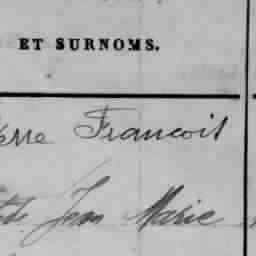 ET SURNOMS.
erre Francois
Jean Marie